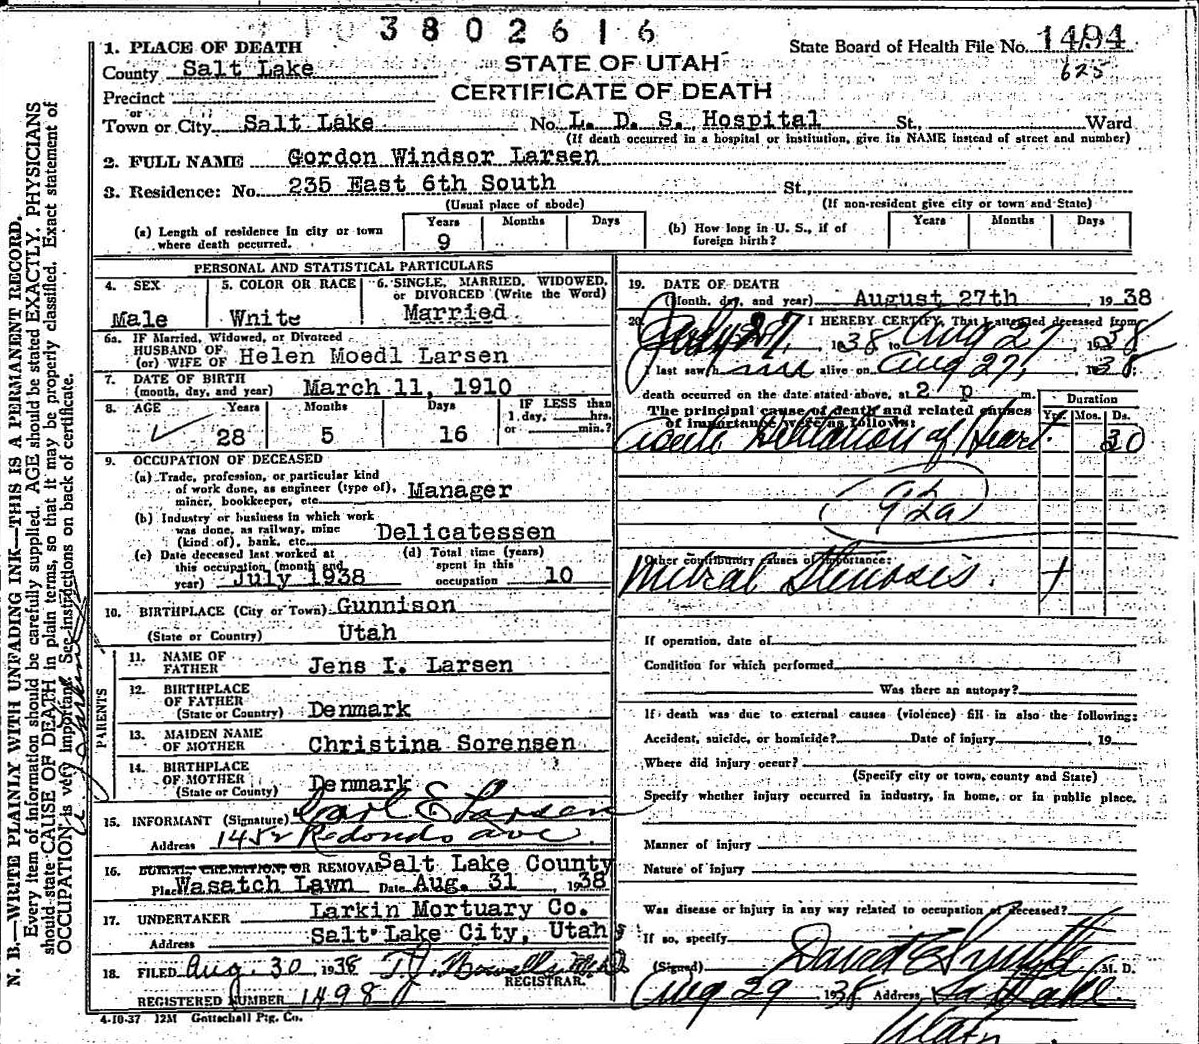 3802616
1. PLACE OF DEATH
State Board of Health File No. 1494
County Salt Lake
STATE OF UTAH
625
Precinct
CERTIFICATE OF DEATH
or
Town or City Salt Lake No. L. D. S. Hospital St., Ward
(If death occurred in a hospital or institution, give its NAME instead of street and number)
2. FULL NAME Gordon Windsor Larsen
3. Residence: No. 235 East 6th South St.,
(Usual place of abode) (If non-resident give city or town and State)
(a) Length of residence in city or town where death occurred. Years 9 Months Days
(b) How long in U. S., if of foreign birth? Years Months Days
PERSONAL AND STATISTICAL PARTICULARS
4. SEX Male
5. COLOR OR RACE White
6. SINGLE, MARRIED, WIDOWED, or DIVORCED (Write the Word) Married
6a. IF Married, Widowed, or Divorced
HUSBAND OF
(or) WIFE OF Helen Moedl Larsen
7. DATE OF BIRTH
(month, day, and year) March 11, 1910
8. AGE Years Months Days IF LESS than
1 day, hrs.
28 5 16 or min.?
9. OCCUPATION OF DECEASED
(a) Trade, profession, or particular kind
of work done, as engineer (type of),
miner, bookkeeper, etc. Manager
(b) Industry or business in which work
was done, as railway, mine
(kind of), bank, etc. Delicatessen
(c) Date deceased last worked at
this occupation (month and
year) July 1938
(d) Total time (years)
spent in this
occupation 10
10. BIRTHPLACE (City or Town) Gunnison
(State or Country) Utah
PARENTS
11. NAME OF
FATHER Jens I. Larsen
12. BIRTHPLACE
OF FATHER
(State or Country) Denmark
13. MAIDEN NAME
OF MOTHER Christina Sorensen
14. BIRTHPLACE
OF MOTHER
(State or County) Denmark
15. INFORMANT (Signature) Carl E Larsen
Address 1452 Redondo ave
16. BURIAL, CREMATION, OR REMOVAL Salt Lake County
Place Wasatch Lawn Date Aug. 31 , 1938
17. UNDERTAKER Larkin Mortuary Co.
Address Salt Lake City, Utah
18. FILED Aug. 30 1938 T.J. Howells M.D.
REGISTRAR.
REGISTERED NUMBER 1498
19. DATE OF DEATH
(Month, day, and year) August 27th , 1938
20. I HEREBY CERTIFY, That I attended deceased from
July 27, 1938 to Aug 27, 1938
I last saw him alive on Aug 27, 1938;
death occurred on the date stated above, at 2 p m.
The principal cause of death and related causes
of importance were as follows:
Duration
Yrs. Mos. Ds.
Acute Dilitation of Heart. 30
92a
Other contributory causes of importance:
Mitral Stenosis. +
If operation, date of
Condition for which performed
Was there an autopsy?
If death was due to external causes (violence) fill in also the following:
Accident, suicide, or homicide? Date of injury , 19
Where did injury occur?
(Specify city or town, county and State)
Specify whether injury occurred in industry, in home, or in public place.
Manner of injury
Nature of injury
Was disease or injury in any way related to occupation of deceased?
If so, specify
(Signed) David E Smith M. D.
Aug 29 1938 Address Salt Lake
Utah
4-10-37 12M Gottschall Ptg. Co.
N. B.—WRITE PLAINLY WITH UNFADING INK—THIS IS A PERMANENT RECORD.
Every item of information should be carefully supplied. AGE should be stated EXACTLY. PHYSICIANS
should state CAUSE OF DEATH in plain terms, so that it may be properly classified. Exact statement of
OCCUPATION is very important. See instructions on back of certificate.